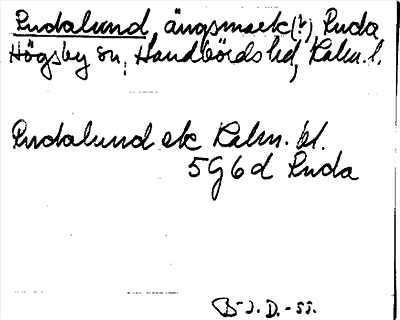 Rudalund, ängsmark(?), Ruda
Högsby sn, Handbörds hd, Kalm. l.
Rudalund ek Kalm. bl.
5G6d Ruda
J.D.-55.